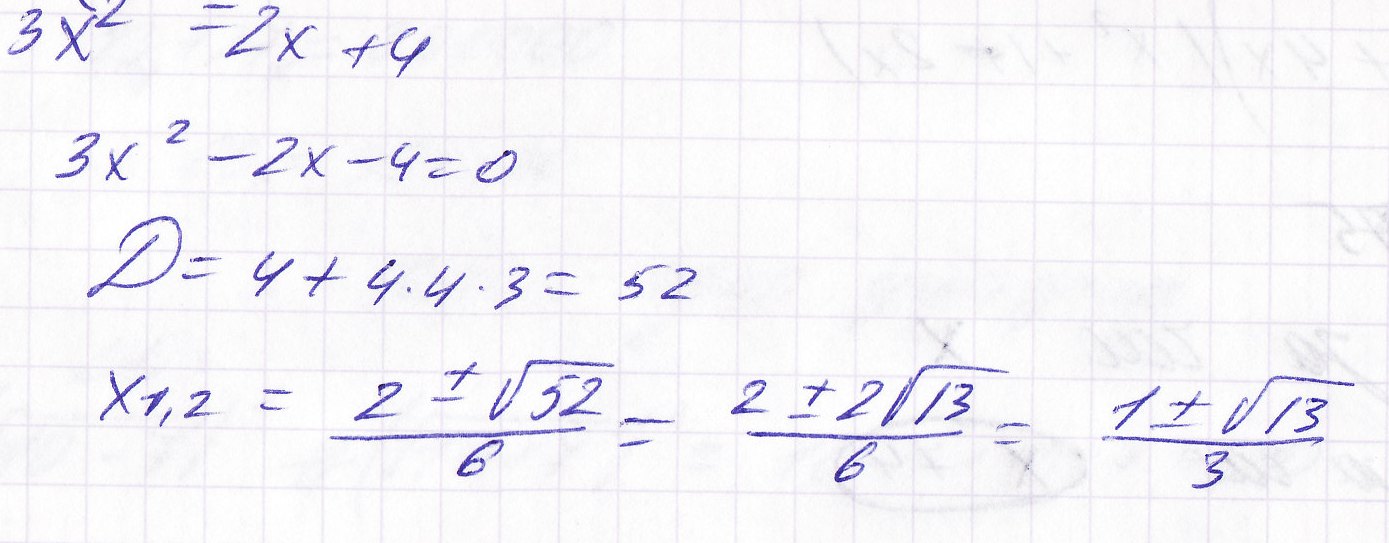 3x² = 2x + 4
3x² - 2x - 4 = 0
D = 4 + 4·4·3 = 52
x₁,₂ = (2 ± √52)/6 = (2 ± 2√13)/6 = (1 ± √13)/3